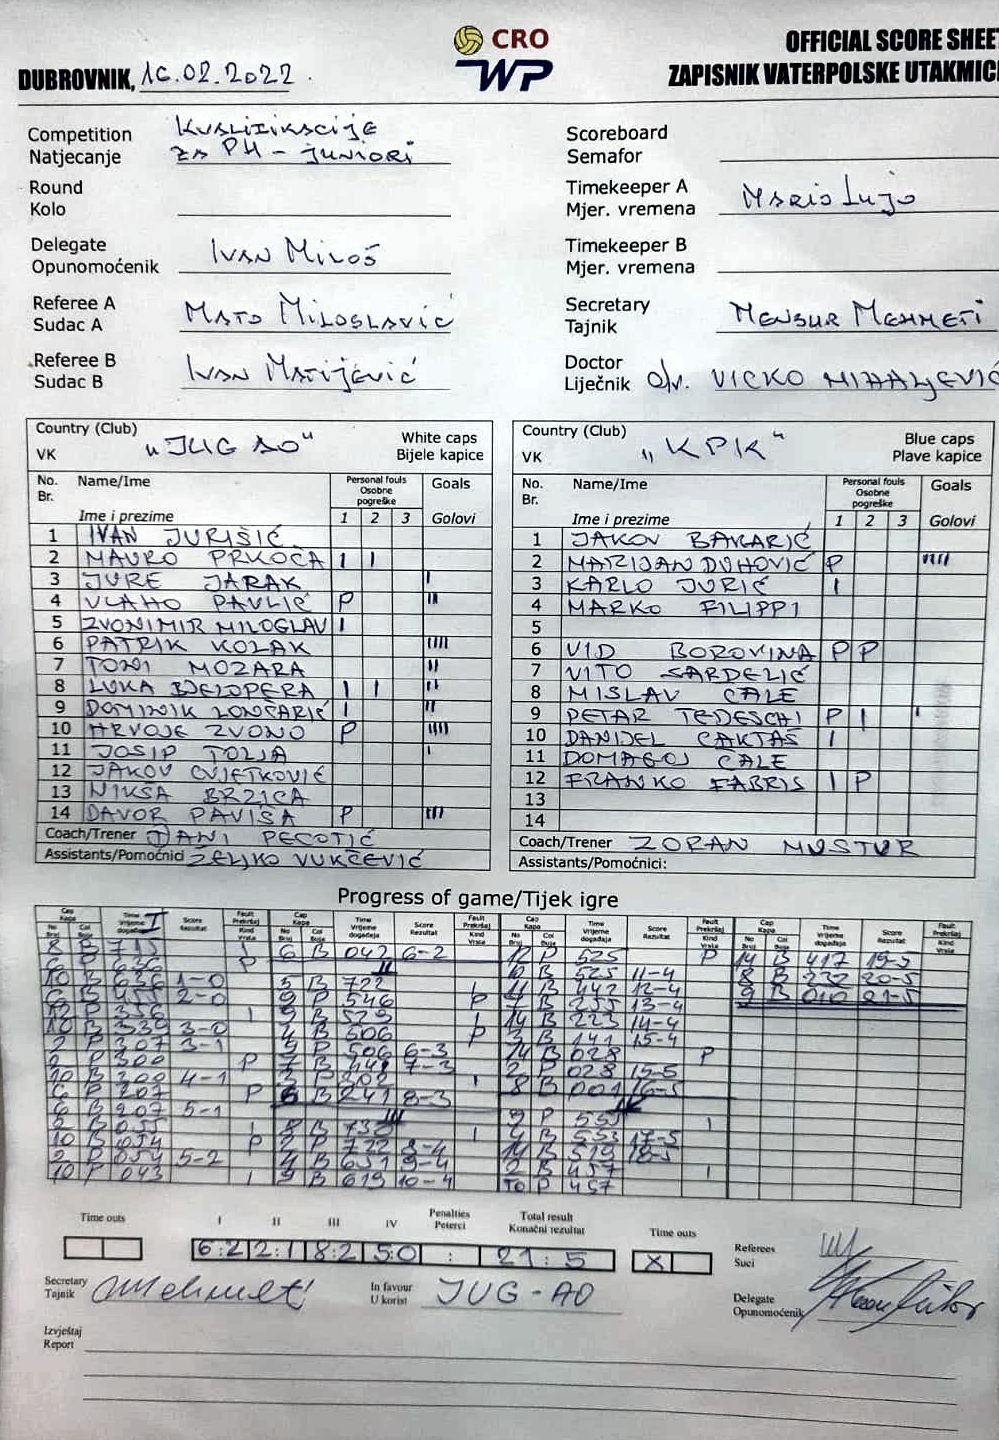 CRO
WP
OFFICIAL SCORE SHEET
DUBROVNIK, 16.02.2022.
ZAPISNIK VATERPOLSKE UTAKMICE
Competition Kvalifikacije
Natjecanje za PH - juniori
Round
Kolo
Delegate
Opunomoćenik Ivan Miloš
Referee A
Sudac A Mato Miloslavić
Referee B
Sudac B Ivan Matijević
Scoreboard
Semafor
Timekeeper A
Mjer. vremena Mario Lujo
Timekeeper B
Mjer. vremena
Secretary
Tajnik Mensur Mehmeti
Doctor
Liječnik VICKO MIHALJEVIĆ
Country (Club)
VK "JUG AO"
White caps
Bijele kapice
No. Name/Ime Personal fouls Goals
Br. Osobne pogreške
Ime i prezime 1 2 3 Golovi
1 IVAN JURIŠIĆ
2 MAURO PRKOČA I I
3 JURE JARAK I
4 VLAHO PAVLIĆ P II
5 ZVONIMIR MILOGLAV I
6 PATRIK KOLAK IIII
7 TONI MOZARA II
8 LUKA BJELOPERA I I II
9 DOMINIK LONČARIĆ I II
10 HRVOJE ZVONO P IIII
11 JOSIP TOLJA I
12 JAKOV CVJETKOVIĆ
13 NIKŠA BRZICA
14 DAVOR PAVIŠA P III
Coach/Trener
Assistants/Pomoćnici ŽELJKO VUKČEVIĆ
Country (Club)
VK "KPK"
Blue caps
Plave kapice
No. Name/Ime Personal fouls Goals
Br. Osobne pogreške
Ime i prezime 1 2 3 Golovi
1 JAKOV BAKARIĆ
2 MARIJAN DUHOVIĆ P IIII
3 KARLO JURIĆ I
4 MARKO FILIPPI
5
6 VID BOROVINA P P
7 VITO SARDELIĆ
8 MISLAV CALE
9 PETAR TEDESCHI P I I
10 DANIJEL CAKTAŠ I
11 DOMAGOJ CALE
12 FRANKO FABRIS I P
13
14
Coach/Trener ZORAN MUSTUR
Assistants/Pomoćnici:
Progress of game/Tijek igre
8 B 715
10 B 636 1-0
6 B 455 2-0
12 P 356 I
10 B 339 3-0
2 P 307 3-1
2 P 300 P
10 B 200 4-1
6 P 207 P
6 B 207 5-1
10 B 054 P
2 P 054 5-2
10 P 043 I
6 B 042 6-2
II
5 B 722 I
9 P 546 P
9 B 529 I
4 B 506 P
9 P 506 6-3
6 B 241 8-3
III
8 B 732 I
2 P 722 8-4
4 B 651 9-4
9 B 619 10-4
12 P 525 P
10 B 525 11-4
11 B 442 12-4
7 B 255 13-4
14 B 223 14-4
3 B 141 15-4
14 B 028 P
2 P 028 15-5
8 B 001 16-5
IV
9 P 555 I
4 B 553 17-5
14 B 519 18-5
2 B 457 I
10 P 457
14 B 417 19-5
8 B 232 20-5
9 B 010 21-5
Time outs
I II III IV Penalties Peterci Total result Konačni rezultat
6:2 2:1 8:2 5:0 : 21:5
Time outs
X
Referees
Suci
Secretary
Tajnik Mehmeti
In favour
U korist JUG-AO
Delegate
Opunomoćenik
Izvještaj
Report